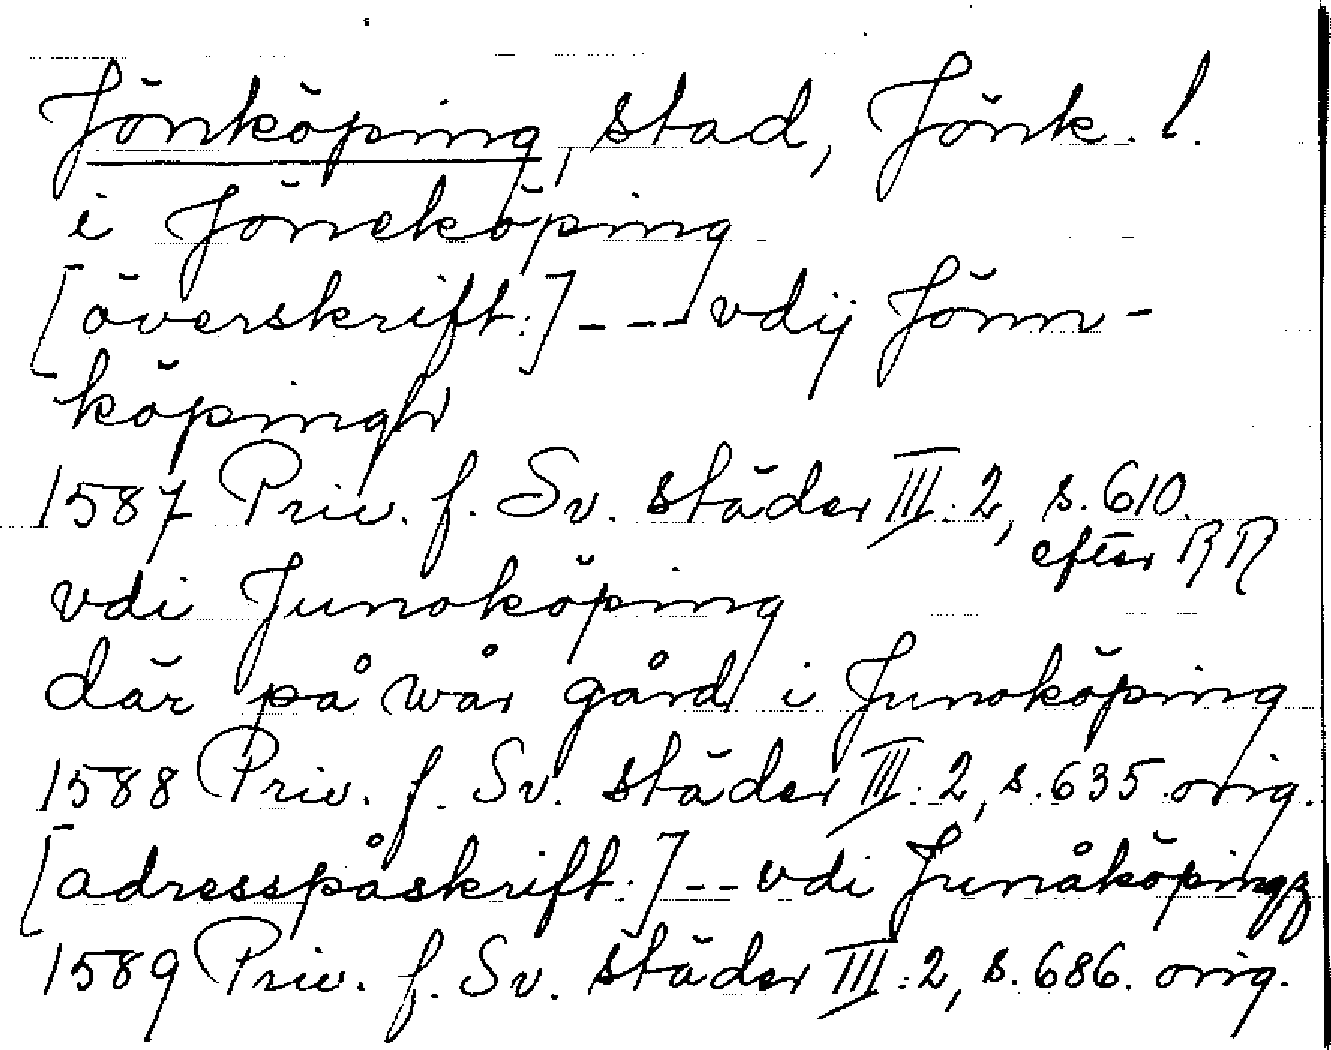 Jönköping, stad, Jönk. l.
i Jöneköping
[överskrift:] --- vdij Jönn-
köpingh
1587 Priv. f. Sv. städer III:2, s. 610.
efter RR
vdi Junoköping
där på wår gård i Junoköping
1588 Priv. f. Sv. städer III:2, s. 635 orig.
[adresspåskrift:] -- vdi Junåköpingz
1589 Priv. f. Sv. städer III:2, s. 686. orig.